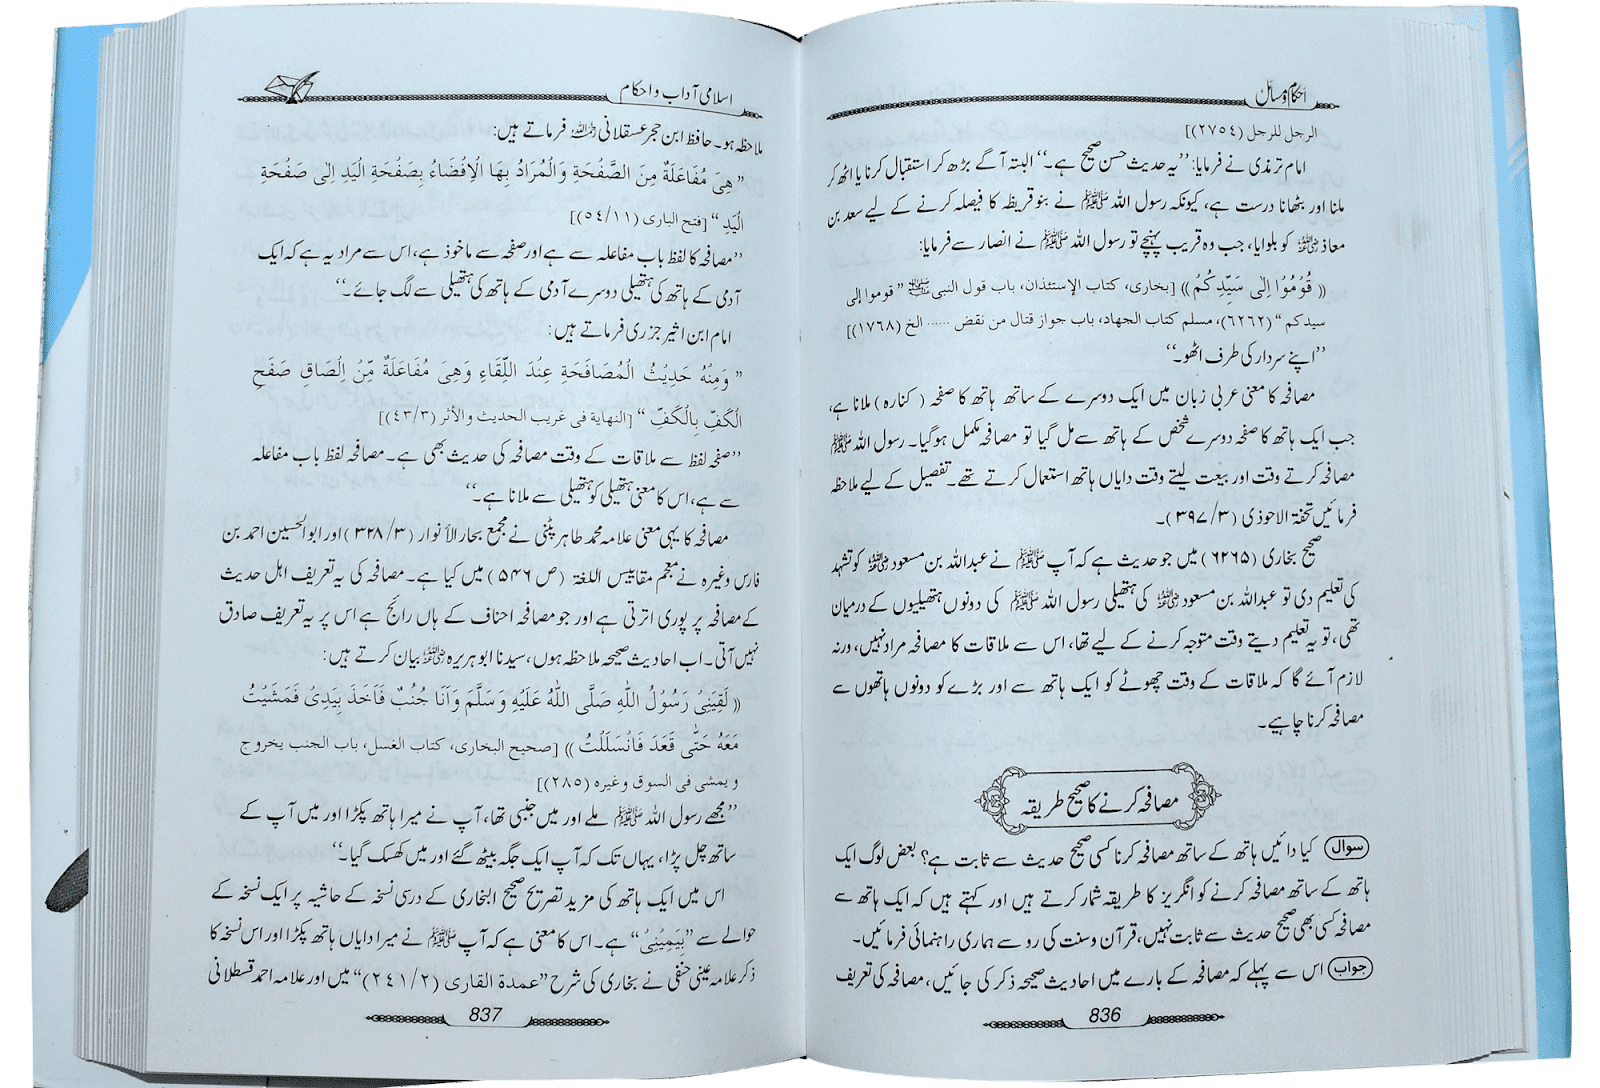 احکام و مسائل
الرجل للرجل (۲۷۵٤)]
امام ترمذی نے فرمایا: ’’یہ حدیث حسن صحیح ہے۔‘‘ البتہ آگے بڑھ کر استقبال کرنا یا اٹھ کر
ملنا اور بٹھانا درست ہے، کیونکہ رسول اللہ ﷺ نے بنو قریظہ کا فیصلہ کرنے کے لیے سعد بن
معاذ رضی اللہ عنہ کو بلوایا، جب وہ قریب پہنچے تو رسول اللہ ﷺ نے انصار سے فرمایا:
(( قُوْمُوْا اِلٰی سَیِّدِکُمْ )) [بخاری، کتاب الإستئذان، باب قول النبی ﷺ ” قوموا إلی
سیدکم “ (٦۲٦۲)، مسلم کتاب الجهاد، باب جواز قتال من نقض ...... الخ (۱۷٦۸)]
’’اپنے سردار کی طرف اٹھو۔‘‘
مصافحہ کا معنی عربی زبان میں ایک دوسرے کے ساتھ ہاتھ کا صفحہ (کنارہ) ملانا ہے،
جب ایک ہاتھ کا صفحہ دوسرے شخص کے ہاتھ سے مل گیا تو مصافحہ مکمل ہوگیا۔ رسول اللہ ﷺ
مصافحہ کرتے وقت اور بیعت لیتے وقت دایاں ہاتھ استعمال کرتے تھے۔ تفصیل کے لیے ملاحظہ
فرمائیں تحفۃ الاحوذی (۳/ ۳۹۷)۔
صحیح بخاری (۶۲۶۵) میں جو حدیث ہے کہ آپ ﷺ نے عبداللہ بن مسعود رضی اللہ عنہ کو تشہد
کی تعلیم دی تو عبداللہ بن مسعود رضی اللہ عنہ کی ہتھیلی رسول اللہ ﷺ کی دونوں ہتھیلیوں کے درمیان
تھی، تو یہ تعلیم دیتے وقت متوجہ کرنے کے لیے تھا، اس سے ملاقات کا مصافحہ مراد نہیں، ورنہ
لازم آئے گا کہ ملاقات کے وقت چھوٹے کو ایک ہاتھ سے اور بڑے کو دونوں ہاتھوں سے
مصافحہ کرنا چاہیے۔
مصافحہ کرنے کا صحیح طریقہ
سوال کیا دائیں ہاتھ کے ساتھ مصافحہ کرنا کسی صحیح حدیث سے ثابت ہے؟ بعض لوگ ایک
ہاتھ کے ساتھ مصافحہ کرنے کو انگریز کا طریقہ شمار کرتے ہیں اور کہتے ہیں کہ ایک ہاتھ سے
مصافحہ کسی بھی صحیح حدیث سے ثابت نہیں، قرآن و سنت کی رو سے ہماری راہنمائی فرمائیں۔
جواب اس سے پہلے کہ مصافحہ کے بارے میں احادیث صحیحہ ذکر کی جائیں، مصافحہ کی تعریف
836
اسلامی آداب و احکام
ملاحظہ ہو۔ حافظ ابن حجر عسقلانی رحمہ اللہ فرماتے ہیں:
” هِیَ مُفَاعَلَةٌ مِنَ الصَّفْحَةِ وَالْمُرَادُ بِهَا الْإِفْضَاءُ بِصَفْحَةِ الْیَدِ إِلٰی صَفْحَةِ
الْیَدِ “ [فتح الباری (۱۱/ ٥٤)]
’’مصافحہ کا لفظ باب مفاعلہ سے ہے اور صفحہ سے ماخوذ ہے، اس سے مراد یہ ہے کہ ایک
آدمی کے ہاتھ کی ہتھیلی دوسرے آدمی کے ہاتھ کی ہتھیلی سے لگ جائے۔‘‘
امام ابن اثیر جزری فرماتے ہیں:
” وَمِنْهُ حَدِیْثُ الْمُصَافَحَةِ عِنْدَ اللِّقَاءِ وَهِیَ مُفَاعَلَةٌ مِّنْ اِلْصَاقِ صَفْحِ
الْکَفِّ بِالْکَفِّ “ [النهایة فی غریب الحدیث والأثر (۳/ ٤۳)]
’’صفحہ لفظ سے ملاقات کے وقت مصافحہ کی حدیث بھی ہے۔ مصافحہ لفظ باب مفاعلہ
سے ہے، اس کا معنی ہتھیلی کو ہتھیلی سے ملانا ہے۔‘‘
مصافحہ کا یہی معنی علامہ محمد طاہر پٹنی نے مجمع بحار الأنوار (۳/ ۳۲۸) اور ابوالحسین احمد بن
فارس وغیرہ نے معجم مقاییس اللغۃ (ص ۵۴۶) میں کیا ہے۔ مصافحہ کی یہ تعریف اہل حدیث
کے مصافحہ پر پوری اترتی ہے اور جو مصافحہ احناف کے ہاں رائج ہے اس پر یہ تعریف صادق
نہیں آتی۔ اب احادیث صحیحہ ملاحظہ ہوں، سیدنا ابو ہریرہ رضی اللہ عنہ بیان کرتے ہیں:
(( لَقِیَنِیْ رَسُوْلُ اللّٰهِ صَلَّی اللّٰهُ عَلَیْهِ وَسَلَّمَ وَاَنَا جُنُبٌ فَاَخَذَ بِیَدِیْ فَمَشَیْتُ
مَعَهُ حَتّٰی قَعَدَ فَانْسَلَلْتُ )) [صحیح البخاری، کتاب الغسل، باب الجنب یخروج
و یمشی فی السوق وغیره (۲۸٥)]
’’مجھے رسول اللہ ﷺ ملے اور میں جنبی تھا، آپ نے میرا ہاتھ پکڑا اور میں آپ کے
ساتھ چل پڑا، یہاں تک کہ آپ ایک جگہ بیٹھ گئے اور میں کھسک گیا۔‘‘
اس میں ایک ہاتھ کی مزید تصریح صحیح البخاری کے درسی نسخہ کے حاشیہ پر ایک نسخہ کے
حوالے سے ”بِیَمِیْنِیْ“ ہے۔ اس کا معنی ہے کہ آپ ﷺ نے میرا دایاں ہاتھ پکڑا اور اس نسخہ کا
ذکر علامہ عینی حنفی نے بخاری کی شرح ”عمدة القاری (۲/ ۲٤۱)“ میں اور علامہ احمد قسطلانی
837